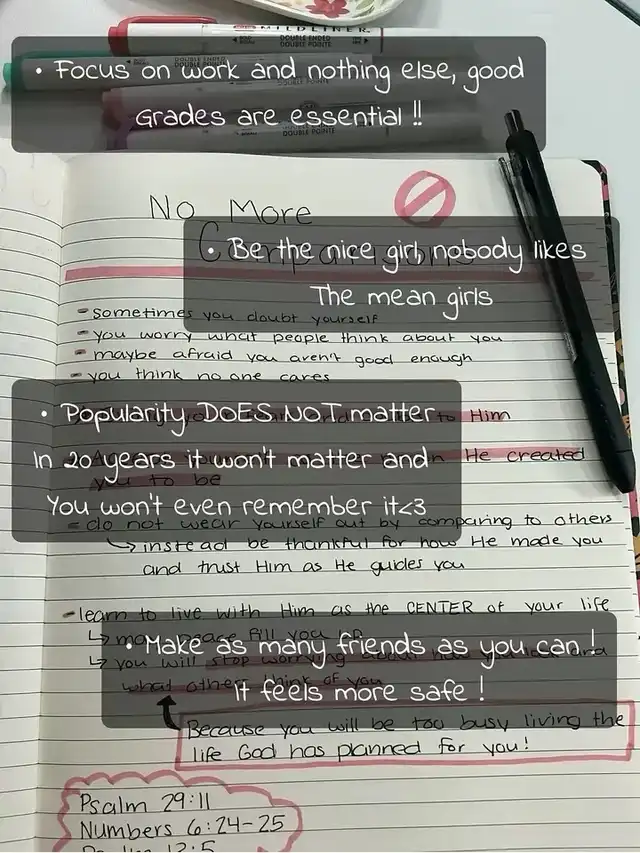 MILDLINER
DOUBLE ENDED
DOUBLE POINTE
• Focus on work and nothing else, good
Grades are essential !!
DOUBLE POINTE
No More
Comparisons
• Be the nice girl, nobody likes
The mean girls
- sometimes you doubt yourself
- you worry what people think about you
- maybe afraid you aren't good enough
- you think no one cares
• Popularity DOES NOT matter
to Him
In 20 years it won't matter and
He created
you to be
You won't even remember it<3
- do not wear yourself out by comparing to others
↳ instead be thankful for how He made you
and trust Him as He guides you
- learn to live with Him as the CENTER of your life
↳ may peace fill you up
• Make as many friends as you can !
↳ you will stop worrying about how you look and
what others think of you
It feels more safe !
Because you will be too busy living the
life God has planned for you!
Psalm 29:11
Numbers 6:24-25
12:5